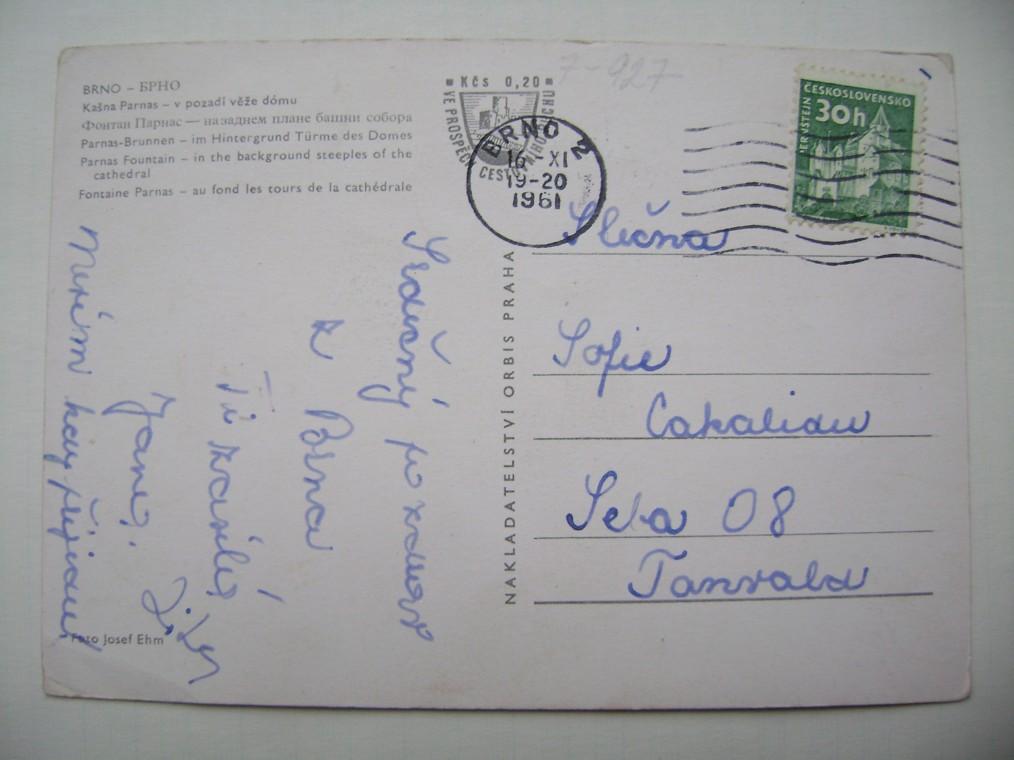 BRNO – БРНО
Kašna Parnas – v pozadí věže dómu
Фонтан Парнас — на заднем плане башни собора
Parnas-Brunnen – im Hintergrund Türme des Domes
Parnas Fountain – in the background steeples of the
cathedral
Fontaine Parnas – au fond les tours de la cathédrale
Kčs 0,20
VE PROSPĚCH
CESTOVNÍHO RUCHU
BRNO 2
16 -XI
19-20
1961
7-927
ČESKOSLOVENSKO
30h
PERNŠTEJN
Srdečný pozdrav
z
Brna
Ti zasílá
Jana
Nevím kdy přijedu
Foto Josef Ehm
NAKLADATELSTVÍ ORBIS PRAHA
Slečna
Sofie
Cakalidu
08
Tanvald